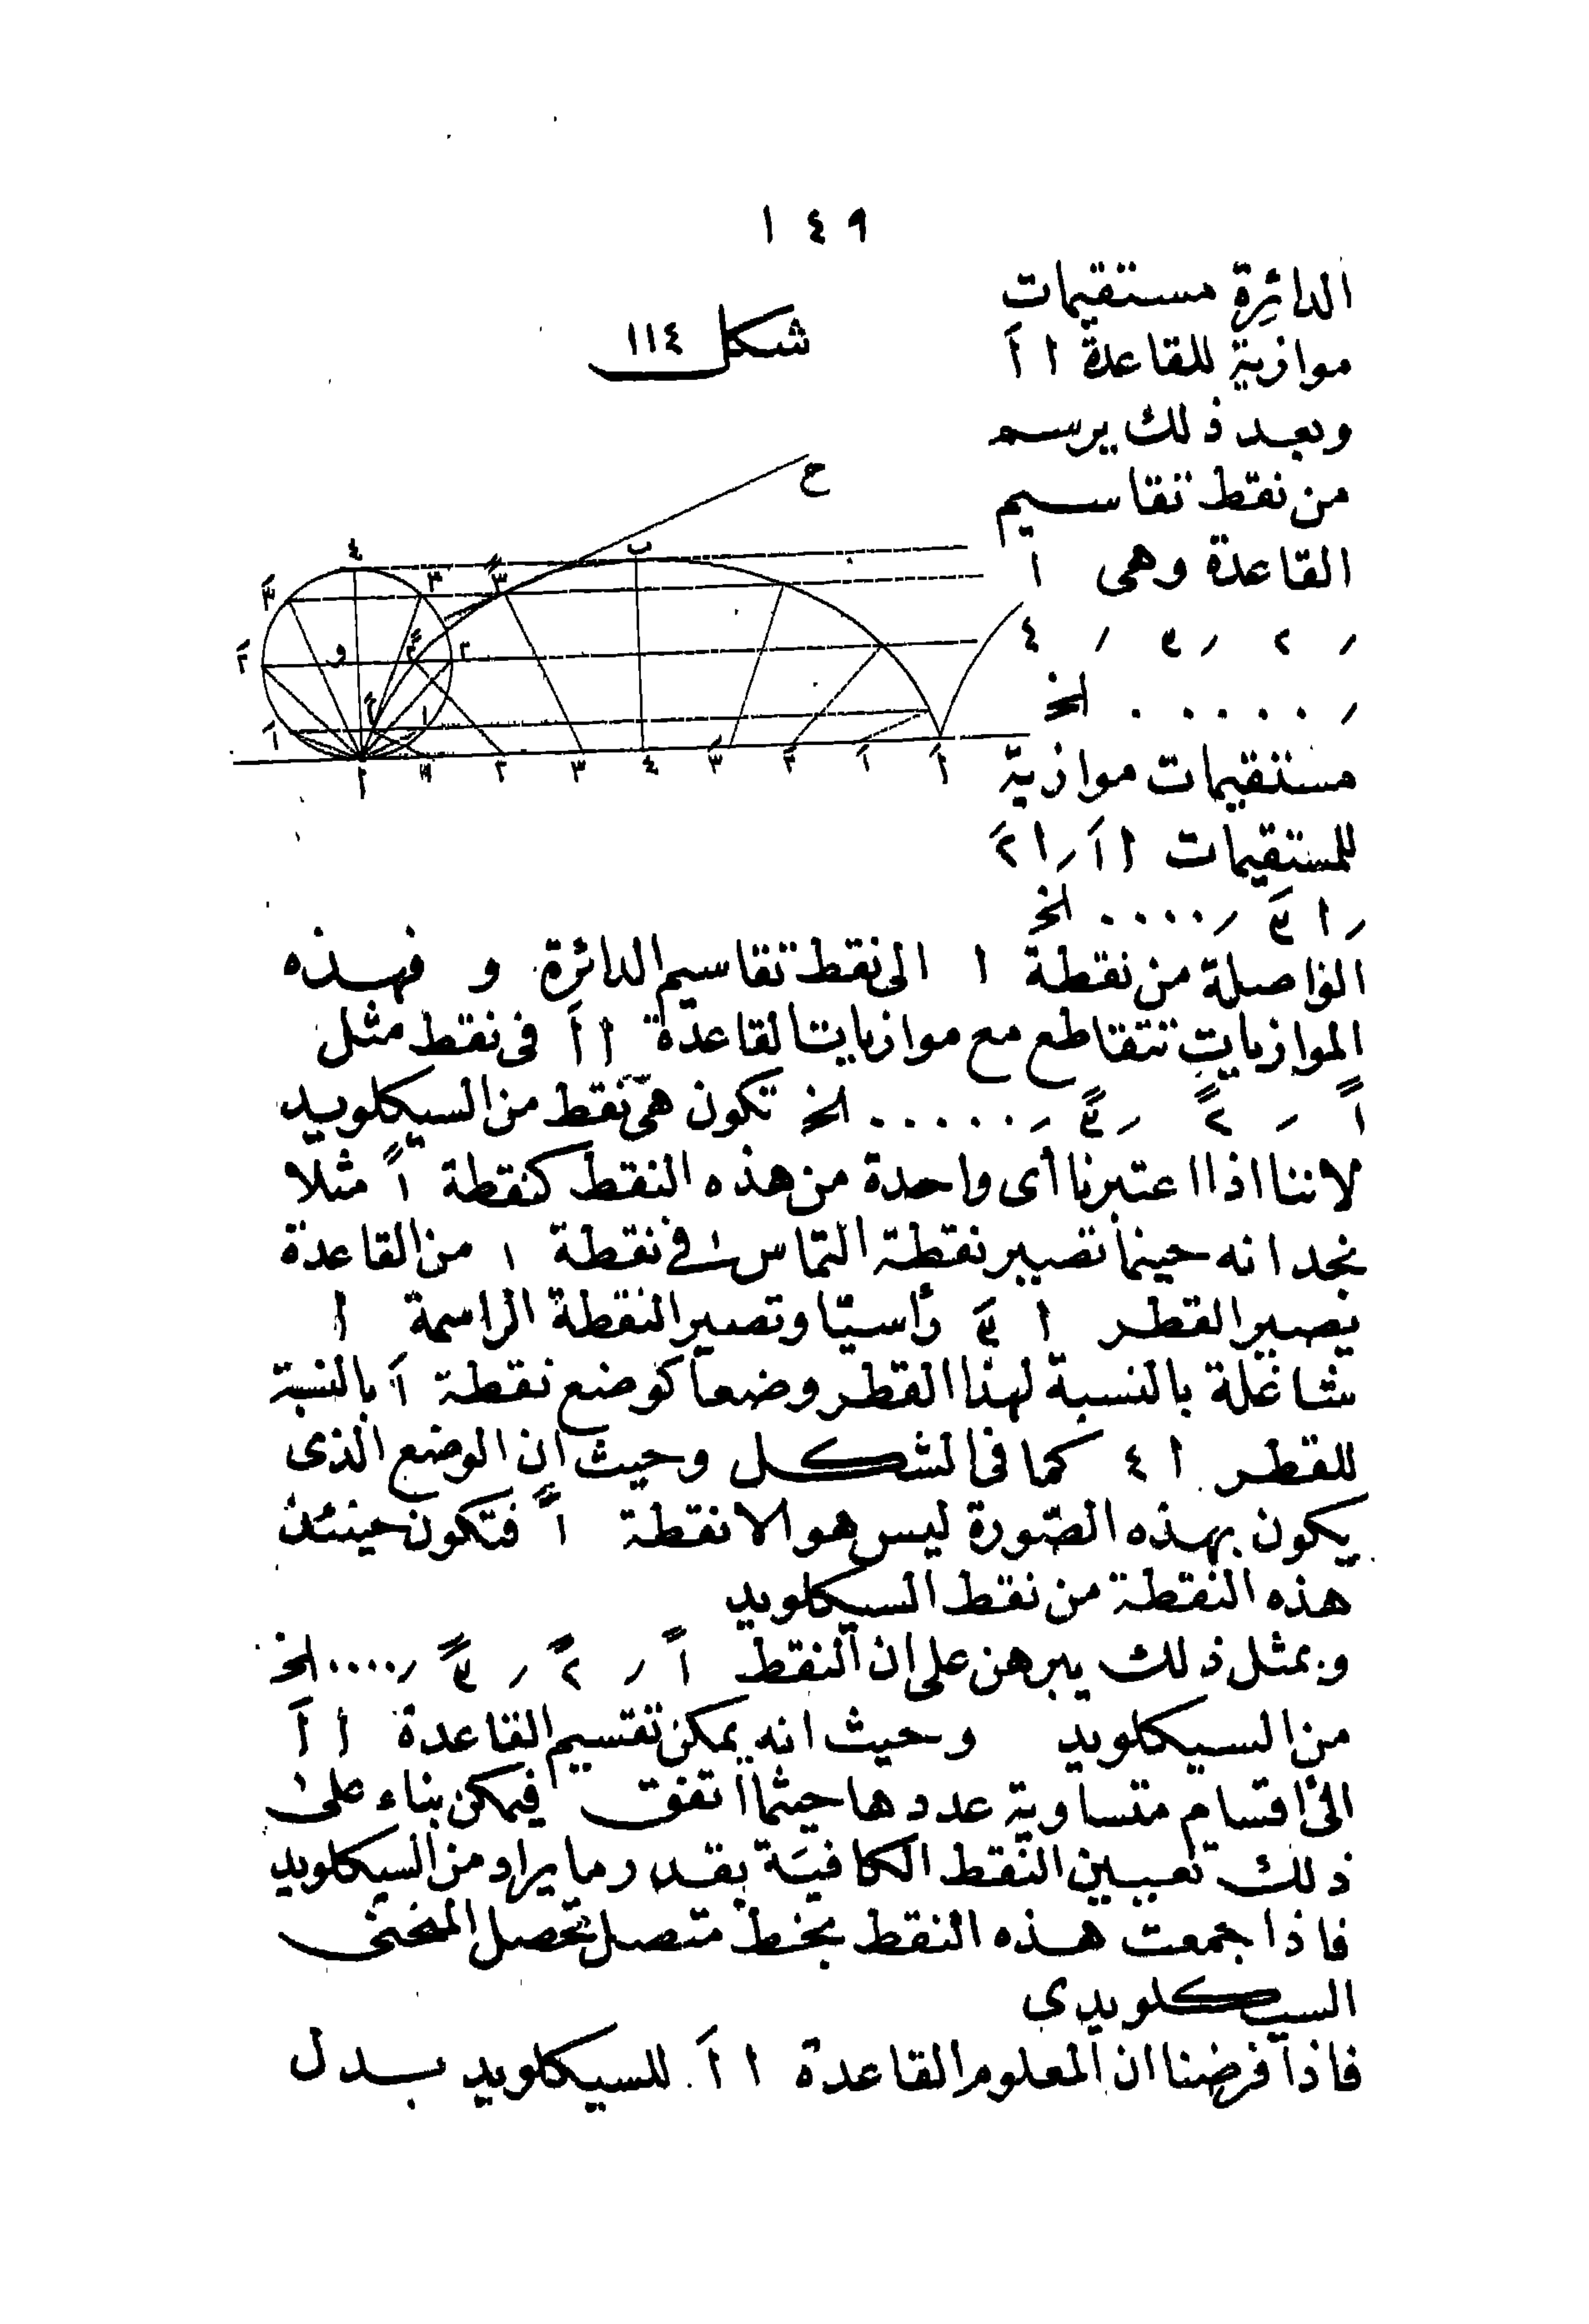 ١٤٩
الدائرة مستقيمات
شكل ١١٤
موازية للقاعدة ا اَ
وبعد ذلك يرسم
من نقط تقاسيم
القاعدة وهى ١
, ٢ , ٣ , ٤
, ...... الخ
مستقيمات موازية
للمستقيمات ا اَ , ا ٢َ
, ا ٣َ , .... الخ
الواصلة من نقطة ا الى نقط تقاسيم الدائرة و فهذه
الموازيات تتقاطع مع موازيات القاعدة ا اَ فى نقط مثل
اً , ٢ً , ٣ً , ...... الخ تكون هى نقط من السيكلويد
لاننا اذا اعتبرنا أى واحدة من هذه النقط كنقطة اً مثلا
نجد انه حينما تصير نقطة التماس فى نقطة ١ من القاعدة
يصير القطر ا ٣َ رأسيا وتصير النقطة الراسمة ا
شاغلة بالنسبة لهذا القطر وضعا كوضع نقطة اَ بالنسبة
للقطر ا ٤ كما فى الشكل وحيث ان الوضع الذى
يكون بهذه الصورة ليس هو الا نقطة اً فتكون حينئذ
هذه النقطة من نقط السيكلويد
وبمثل ذلك يبرهن على ان النقط اً , ٢ً , ٣ً , .... الخ
من السيكلويد وحيث انه يمكن تقسيم القاعدة ا اَ
الى اقسام متساوية عددها حيثما اتفق فيمكن بناء على
ذلك تعيين النقط الكافية بقدر ما يراد من السيكلويد
فاذا جمعت هذه النقط بخط متصل تحصل المنحنى
السيكلويدى
فاذا فرضنا ان المعلوم القاعدة ا اَ للسيكلويد بدل
ح
٤ ٣ ٣ً ب
٣َ
٢َ و ٢ً ٢
اَ اً ١
ا ١ ٢ ٣ ٤ ٣َ ٢َ اَ اَ